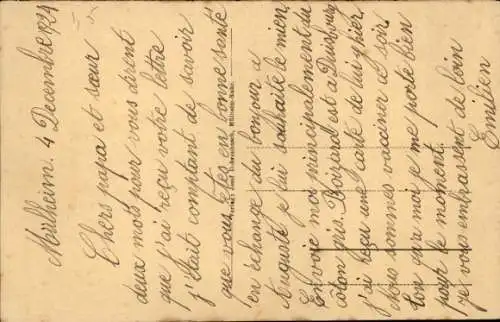 Mülheim. 4 Decembre 1924
Chers papa et sœur
deux mots pour vous dirent
que j'ai reçu votre lettre
j'était comptant de savoir
que vous êtes en bonne santé
en échange du bonjour a
Auguste je lui souhaite le mien,
Envoie moi principalement du
côton gris. Boizard est a Duisbourg
j'ai reçu une carte de lui hier.
Nous sommes vacciner ce soir
enfin moi je me porte bien
pour le moment.
je vous embrassent de loin
Emilien